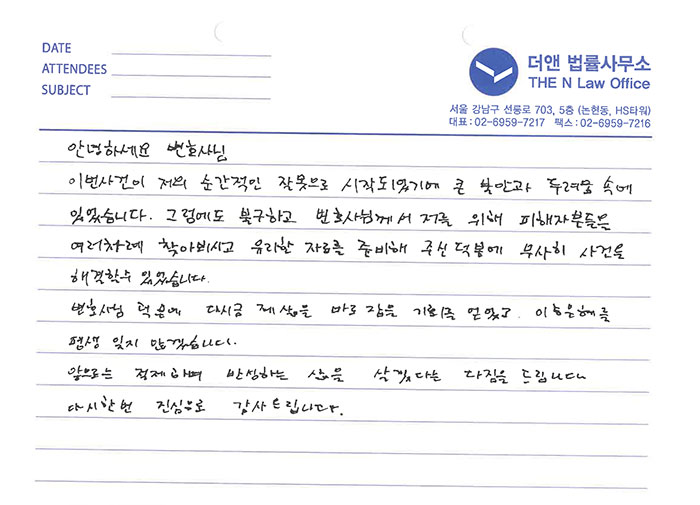 DATE
ATTENDEES
SUBJECT
더앤 법률사무소
THE N Law Office
서울 강남구 선릉로 703, 5층 (논현동, HS타워)
대표 : 02-6959-7217 팩스 : 02-6959-7216
안녕하세요 변호사님
이번사건이 저의 순간적인 잘못으로 시작되었기에 큰 불안과 두려움 속에
있었습니다. 그럼에도 불구하고 변호사님께서 저를 위해 피해자분들을
여러차례 찾아뵈시고 유리한 자료를 준비해 주신 덕분에 무사히 사건을
해결할수 있었습니다.
변호사님 덕분에 다시금 제 삶을 바로 잡을 기회를 얻었고. 이 은혜를
평생 잊지 않겠습니다.
앞으로는 절제하며 반성하는 삶을 살겠다는 다짐을 드립니다
다시한번 진심으로 감사드립니다.